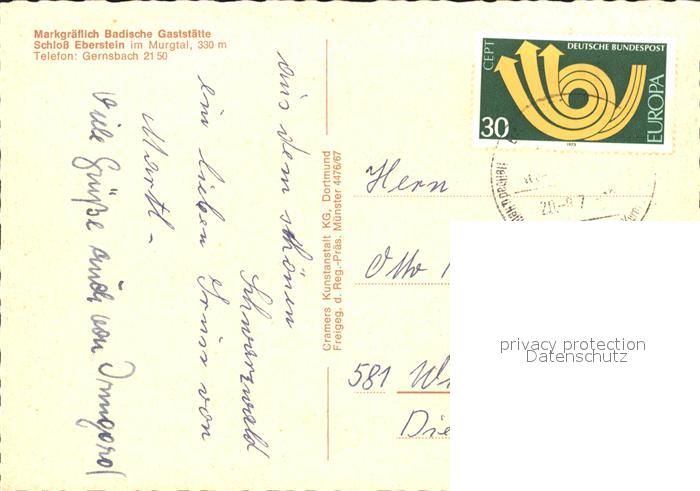 Markgräflich Badische Gaststätte
Schloß Eberstein im Murgtal, 330 m
Telefon: Gernsbach 21 50
aus dem schönen
Schwarzwald
ein lieben Gruss von
Martl-
Viele Grüße auch von Irmgard
Cramers Kunstanstalt KG, Dortmund
Freigeg. d. Reg.-Präs. Münster 4476/67
CEPT
DEUTSCHE BUNDESPOST
30
EUROPA
1973
Hern
Otto
581
Die
privacy protection
Datenschutz